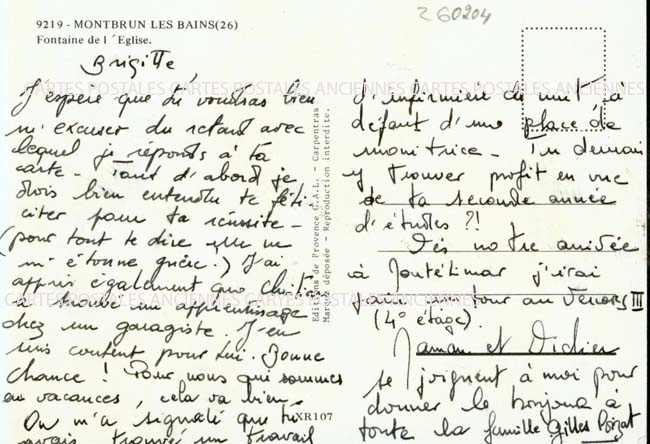 9219 - MONTBRUN LES BAINS(26)
Fontaine de l'Eglise.
Z60204
Brigitte
J'espère que tu voudras bien
m'excuser du retard avec
lequel je réponds à ta
carte - Tout d'abord je
dois bien entendu te féli-
citer pour ta réussite -
(pour tout te dire elle ne
m'étonne guère !) J'ai
appris également que Christian
a trouvé un apprentissage
chez un garagiste. J'en
suis content pour lui. Bonne
chance ! Pour nous qui sommes
en vacances, cela va bien.
On m'a signalé que tu
avais trouvé un travail
Editions de Provence C.A.L. - Carpentras
Marque déposée - Reproduction interdite.
XR107
d'infirmière de nuit à
défaut d'une place de
monitrice - Tu devrais
y trouver profit en vue
de ta seconde année
d'études ?!
Dès notre arrivée
à Montélimar j'irai
faire un tour au Vercors III
(4° étage).
Maman et Didier
se joignent à moi pour
donner le bonjour à
toute la famille Gilles
CARTES POSTALES ANCIENNES CARTES POSTALES ANCIENNES